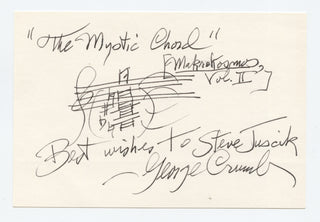 "The Mystic Chord"
[Makrokosmos,
Vol. II]
Best wishes to Steve Juscik
George Crumb